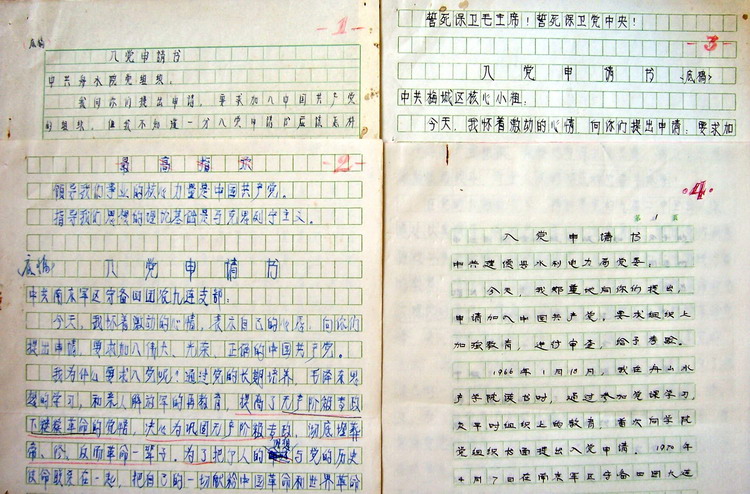 -1-
底稿
入党申请书
中共舟水院党组织:
我向你们提出申请,要求加入中国共产党
的组织,但我不知道一分入党申请书应该怎样
誓死保卫毛主席!誓死保卫党中央!
-3-
入党申请书 <底稿>
中共梅城区核心小组:
今天,我怀着激动的心情,向你们提出申请:要求加
-2-
最高指示
领导我们事业的核心力量是中国共产党。
指导我们思想的理论基础是马克思列宁主义。
底稿> 入党申请书
中共南京军区守备四团农九连支部:
今天,我怀着激动的心情,表示自己的心愿:向你们
提出申请,要求加入伟大、光荣、正确的中国共产党。
我为什么要求入党呢?通过党的长期培养,毛泽东思
想的学习,和军人解放军的再教育,提高了无产阶级专政
下继续革命的觉悟,决心为巩固无产阶级专政,彻底埋葬
帝、修、反而革命一辈子。为了把个人的 与党的历史
使命联系在一起,把自己的一切献给中国革命和世界革命
·4·
第 1 页
入党申请书
中共建德县水利电力局党委:
今天,我郑重地向你们提出
申请加入中国共产党,要求组织上
加强教育,进行审查,给予考验。
1966年1月18月,我在舟山水
产学院读书时,通过参加党课学习,
及平时组织上的教育,首次向学院
党组织书面提出入党申请,1970年
4月7日在南京军区守备四团九连